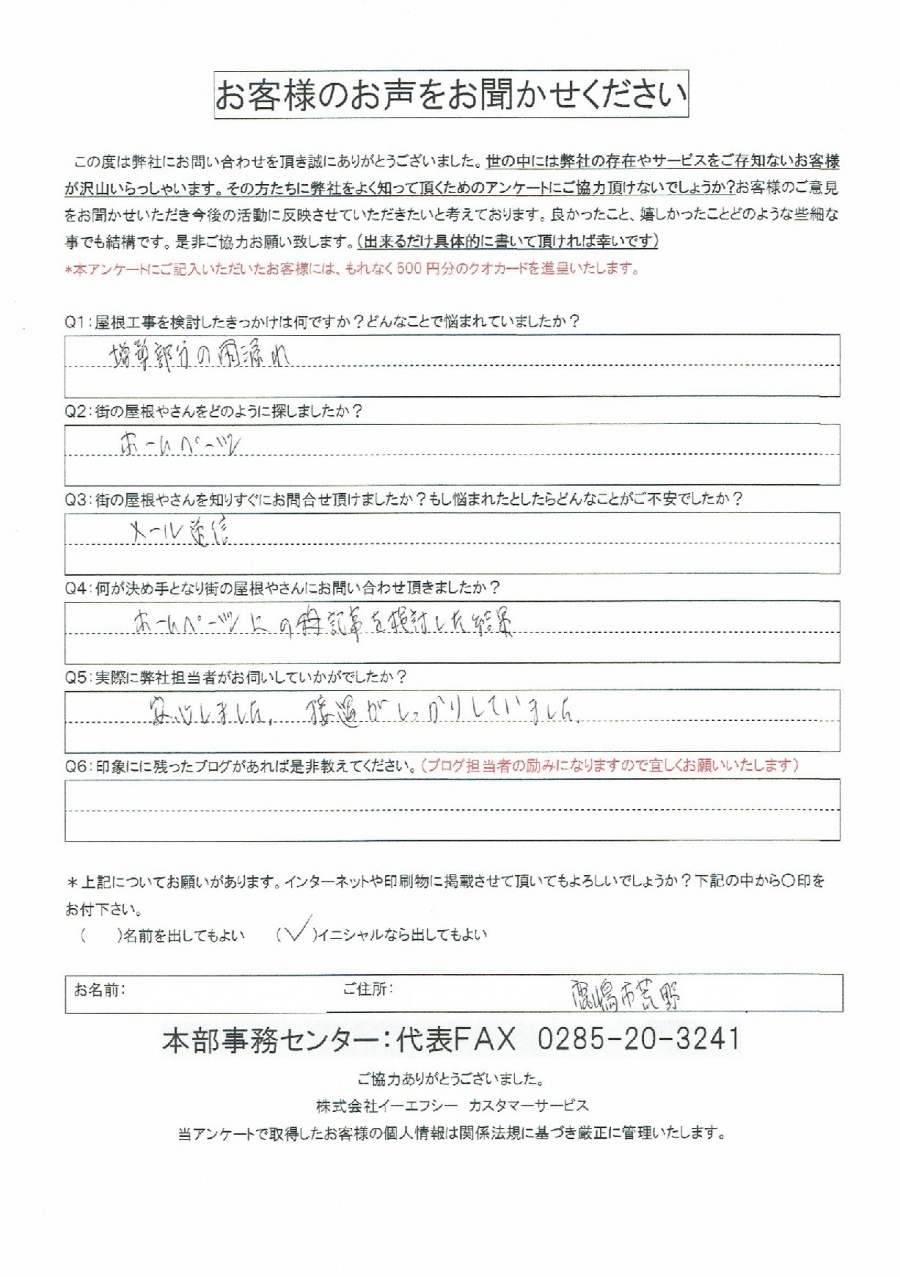 お客様のお声をお聞かせください
この度は弊社にお問い合わせを頂き誠にありがとうございました。世の中には弊社の存在やサービスをご存知ないお客様
が沢山いらっしゃいます。その方たちに弊社をよく知って頂くためのアンケートにご協力頂けないでしょうか?お客様のご意見
をお聞かせいただき今後の活動に反映させていただきたいと考えております。良かったこと、嬉しかったことどのような些細な
事でも結構です。是非ご協力お願い致します。(出来るだけ具体的に書いて頂ければ幸いです)
*本アンケートにご記入いただいたお客様には、もれなく500円分のクオカードを進呈いたします。
Q1:屋根工事を検討したきっかけは何ですか?どんなことで悩まれていましたか?
増築部分の雨漏れ
Q2:街の屋根やさんをどのように探しましたか?
ホームページ
Q3:街の屋根やさんを知りすぐにお問合せ頂けましたか?もし悩まれたとしたらどんなことがご不安でしたか?
メール送信
Q4:何が決め手となり街の屋根やさんにお問い合わせ頂きましたか?
ホームページの記事を検討した結果
Q5:実際に弊社担当者がお伺いしていかがでしたか?
安心しました。 接遇がしっかりしていました。
Q6:印象にに残ったブログがあれば是非教えてください。(ブログ担当者の励みになりますので宜しくお願いいたします)
*上記についてお願いがあります。インターネットや印刷物に掲載させて頂いてもよろしいでしょうか?下記の中から〇印を
お付下さい。
( )名前を出してもよい (✓)イニシャルなら出してもよい
お名前: ご住所: 鹿嶋市荒野
本部事務センター:代表FAX 0285-20-3241
ご協力ありがとうございました。
株式会社イーエフシー カスタマーサービス
当アンケートで取得したお客様の個人情報は関係法規に基づき厳正に管理いたします。